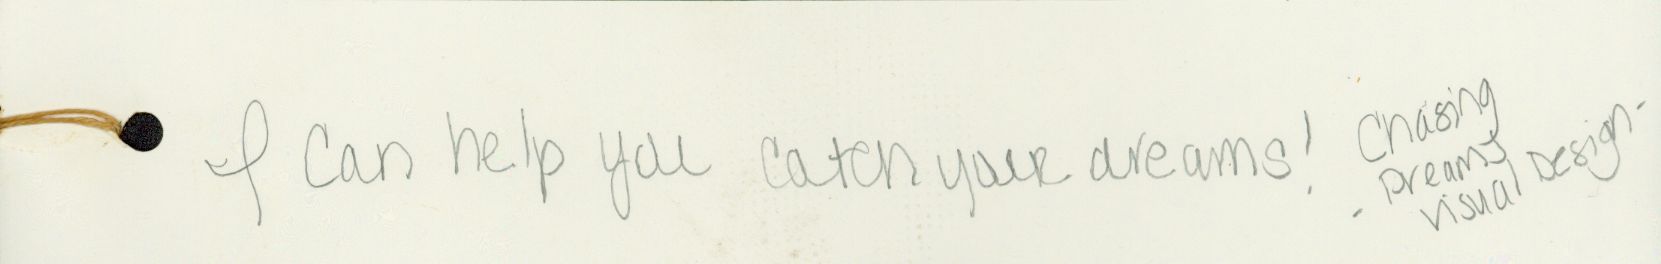 I can help you catch your dreams!
Chasing
Dreams
- Visual Design -